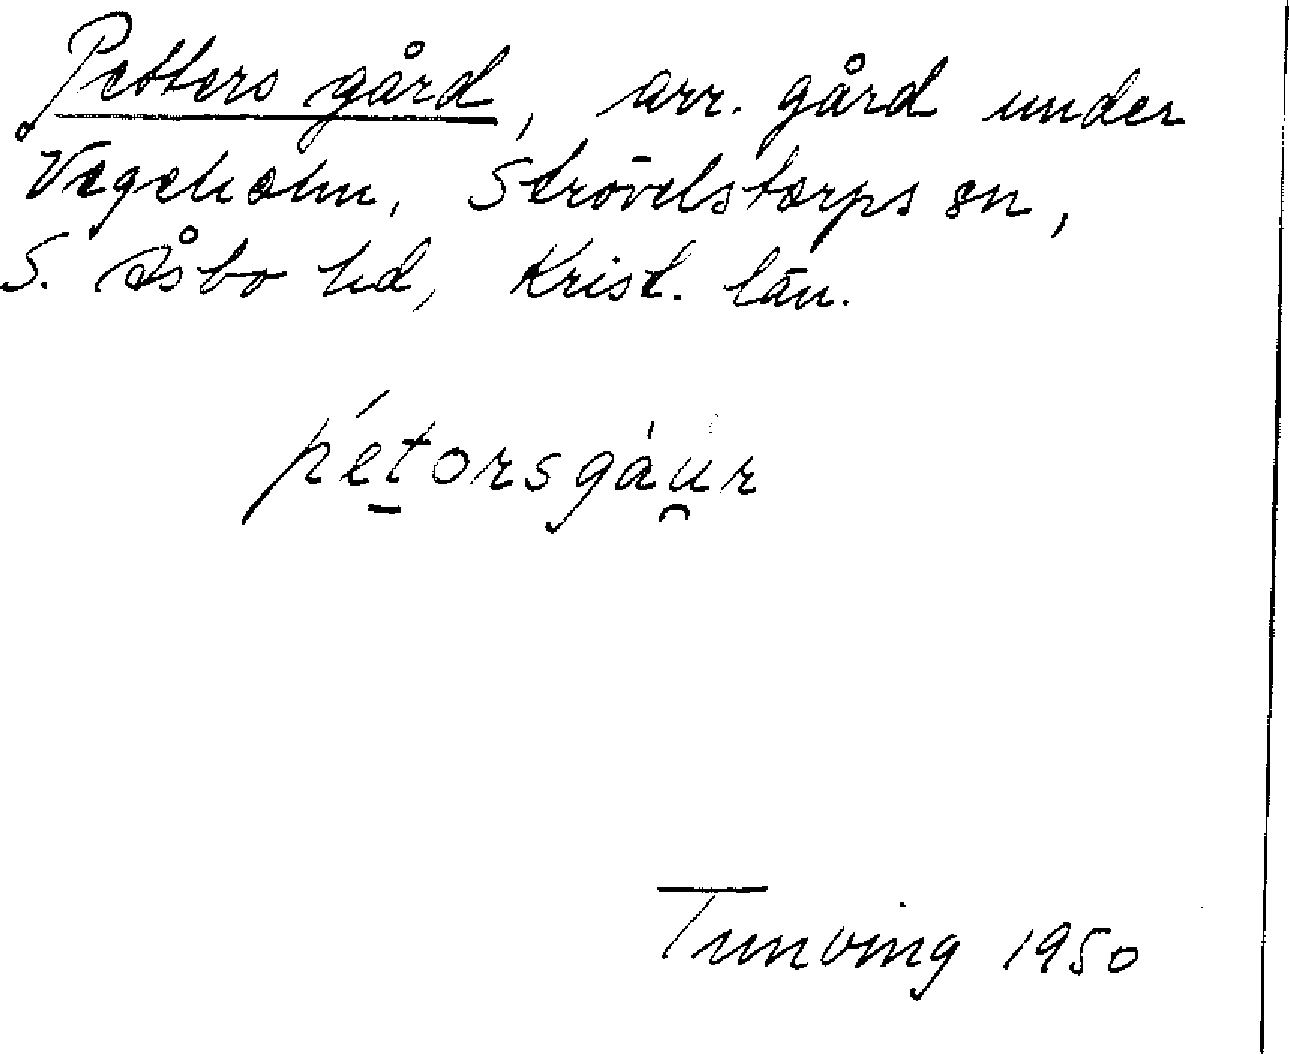 Petters gård, arr. gård under
Vegeholm, Strövelstorps sn,
S. Åsbo hd, Krist. län.
pét̠orsgáu̯r
Tunving 1950